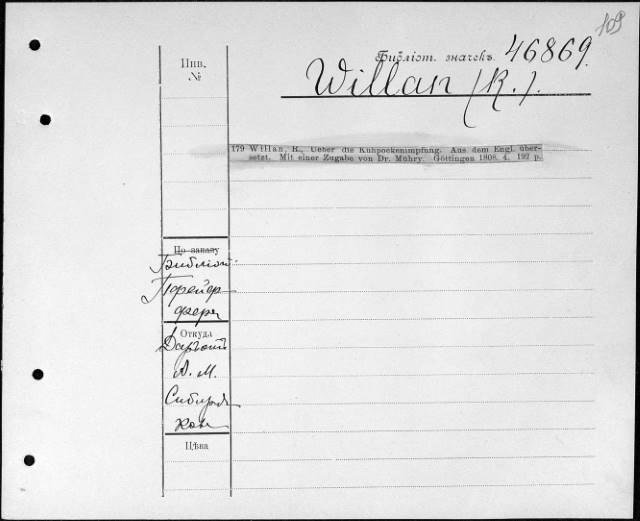 109
Библіот. значекъ 46869.
Инв.
№
Willan (R.).
179 Willan, R., Ueber die Kuhpockenimpfung. Aus dem Engl. über-
setzt. Mit einer Zugabe von Dr. Mühry. Göttingen 1808. 4. 192 p.
По заказу
Библіот.
Откуда
А. М.
Сибиряк
Цѣна